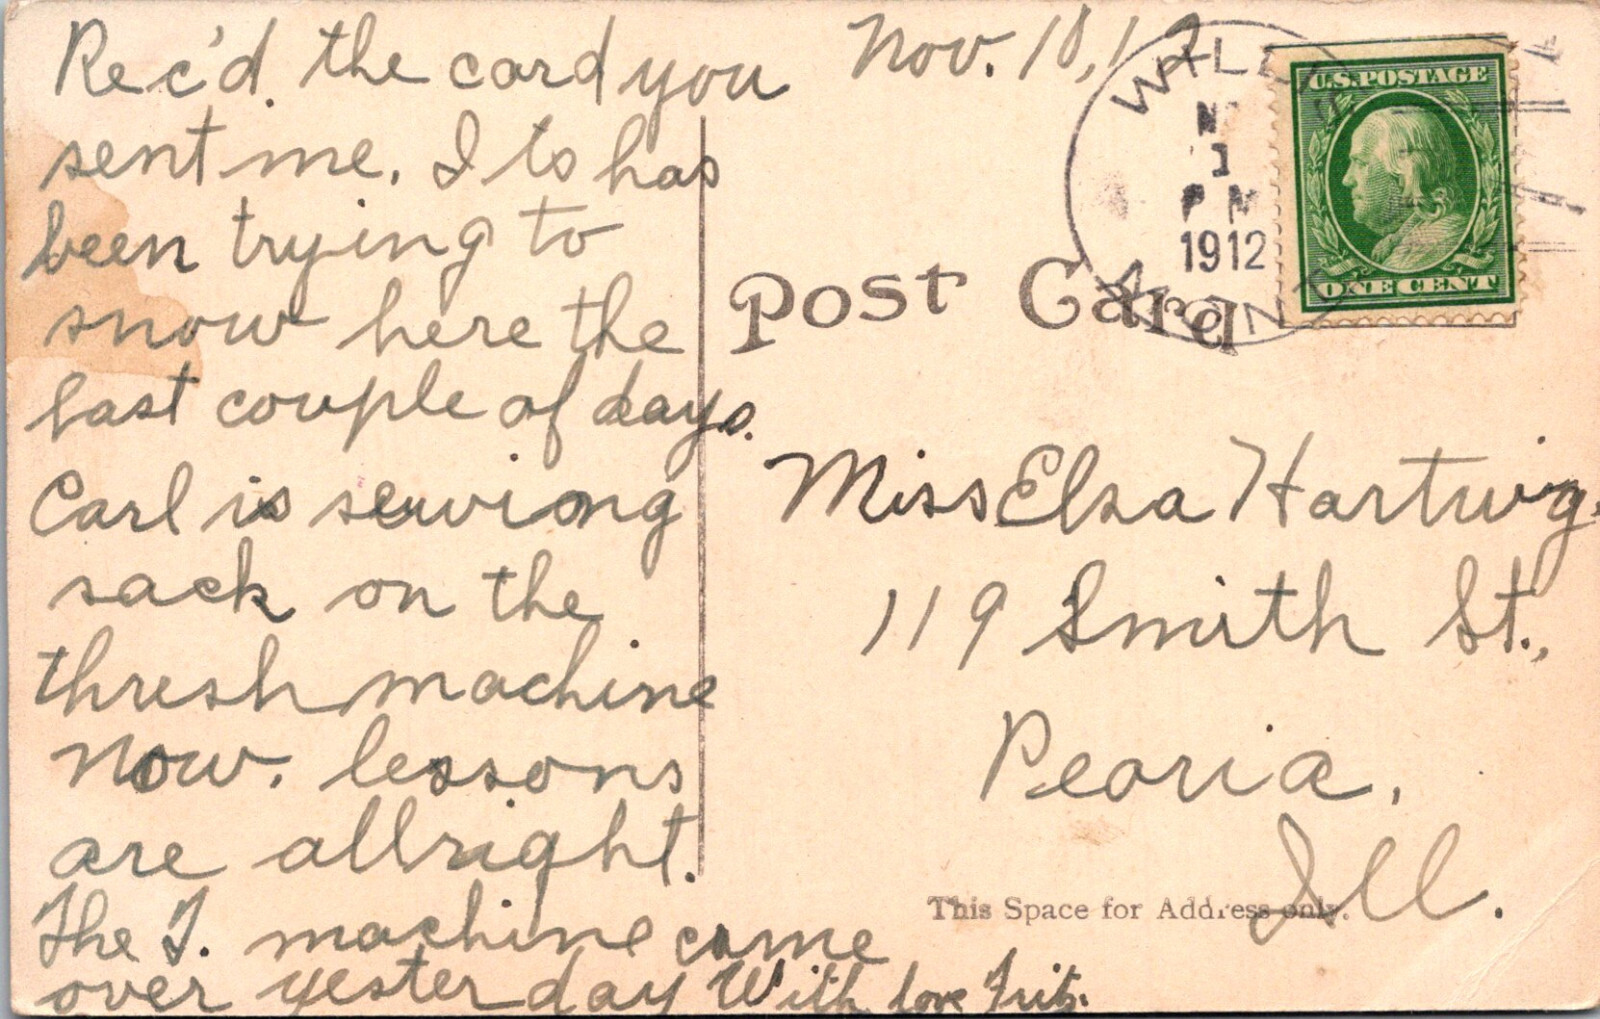 Rec'd. the card you
sent me. I ts has
been trying to
snow here the
last couple of days.
Carl is sewiong
sack on the
thresh machine
now. lessons
are allright.
The T. machine came
over yesterday With love Fritz.
Nov. 10, 12
1
P M
1912
MINN
U.S. POSTAGE
ONE CENT
Post Card
Miss Elsa Hartwig.
119 Smith St.,
Peoria,
Ill.
This Space for Address only.